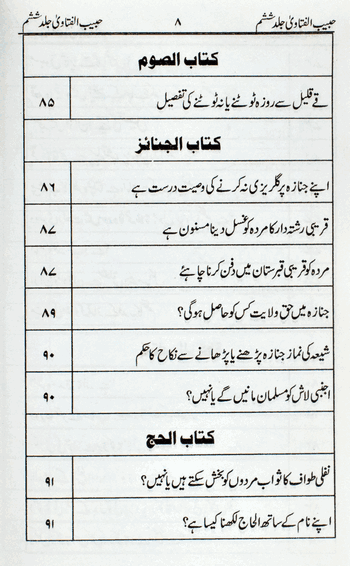 حبیب الفتاویٰ جلد ششم ۸ حبیب الفتاویٰ جلد ششم
کتاب الصوم
قے قلیل سے روزہ ٹوٹنے یا نہ ٹوٹنے کی تفصیل ۸۵
کتاب الجنائز
اپنے جنازہ پر گلریزی نہ کرنے کی وصیت درست ہے ۸۶
قریبی رشتہ دار کا مردہ کو غسل دینا مسنون ہے ۸۷
مردہ کو قریبی قبرستان میں دفن کرنا چاہئے ۸۷
جنازہ میں حق ولایت کس کو حاصل ہوگی؟ ۸۹
شیعہ کی نماز جنازہ پڑھنے یا پڑھانے سے نکاح کا حکم ۹۰
اجنبی لاش کو مسلمان مانیں گے یا نہیں؟ ۹۰
کتاب الحج
نفلی طواف کا ثواب مردوں کو بخش سکتے ہیں یا نہیں؟ ۹۱
اپنے نام کے ساتھ الحاج لکھنا کیسا ہے؟ ۹۱